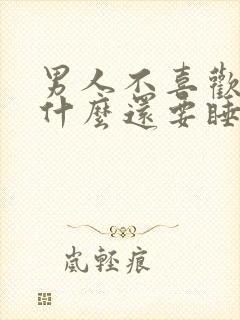 男人不喜歡
什麼還要睡
嵐輕痕